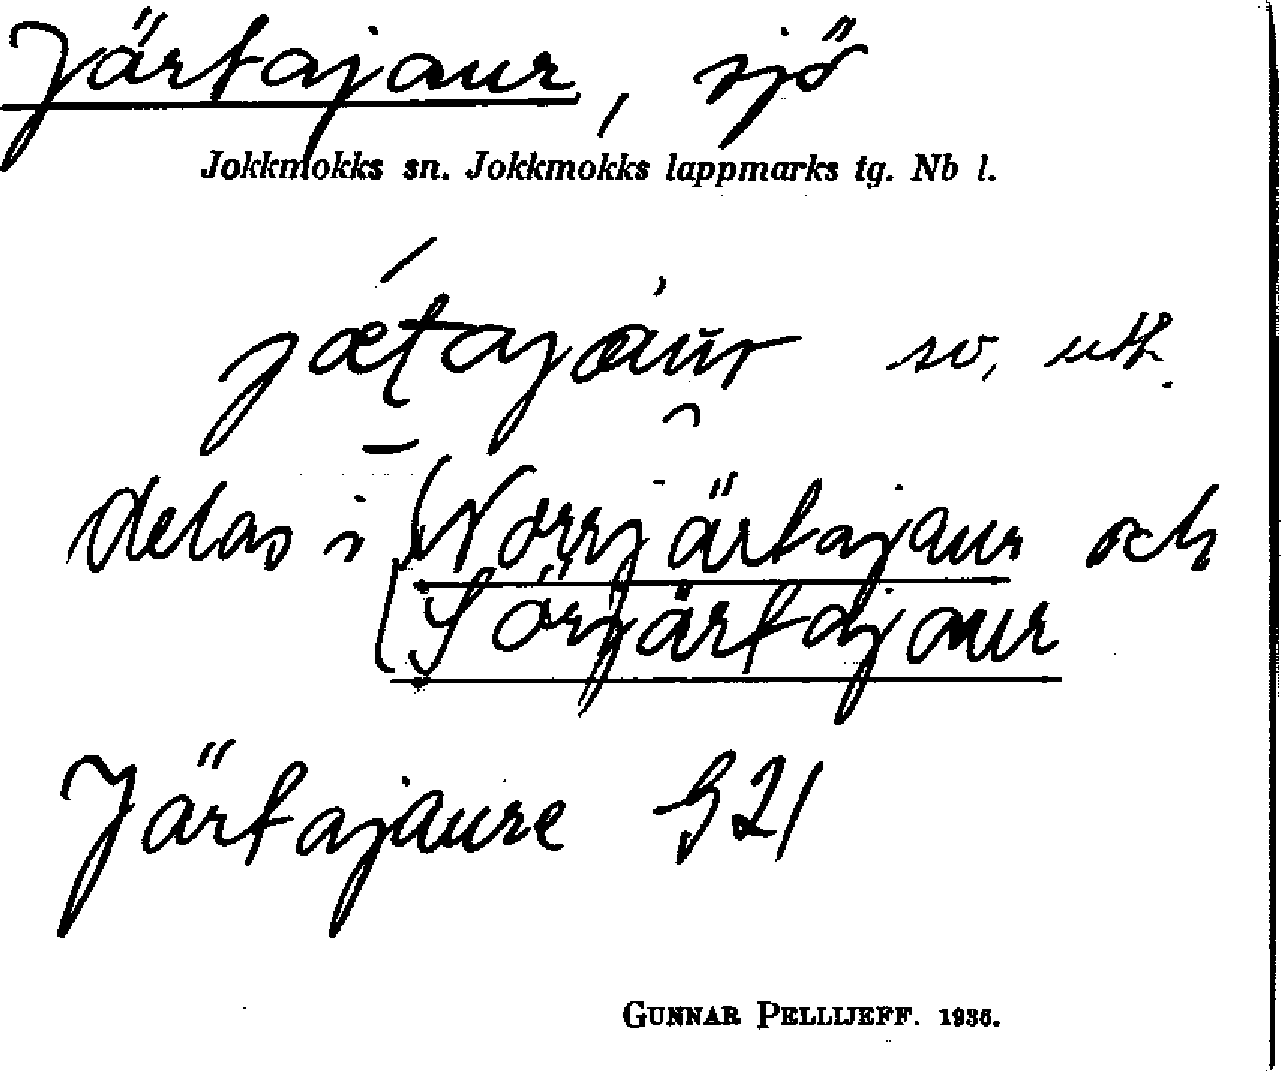 Järtajaur, sjö
Jokkmokks sn. Jokkmokks lappmarks tg. Nb l.
jæʈajáur sv. utt.
delas i Norrjärtajaur och
Sörjärtajaur
Järtajaure G 21
GUNNAR PELLIJEFF. 1936.